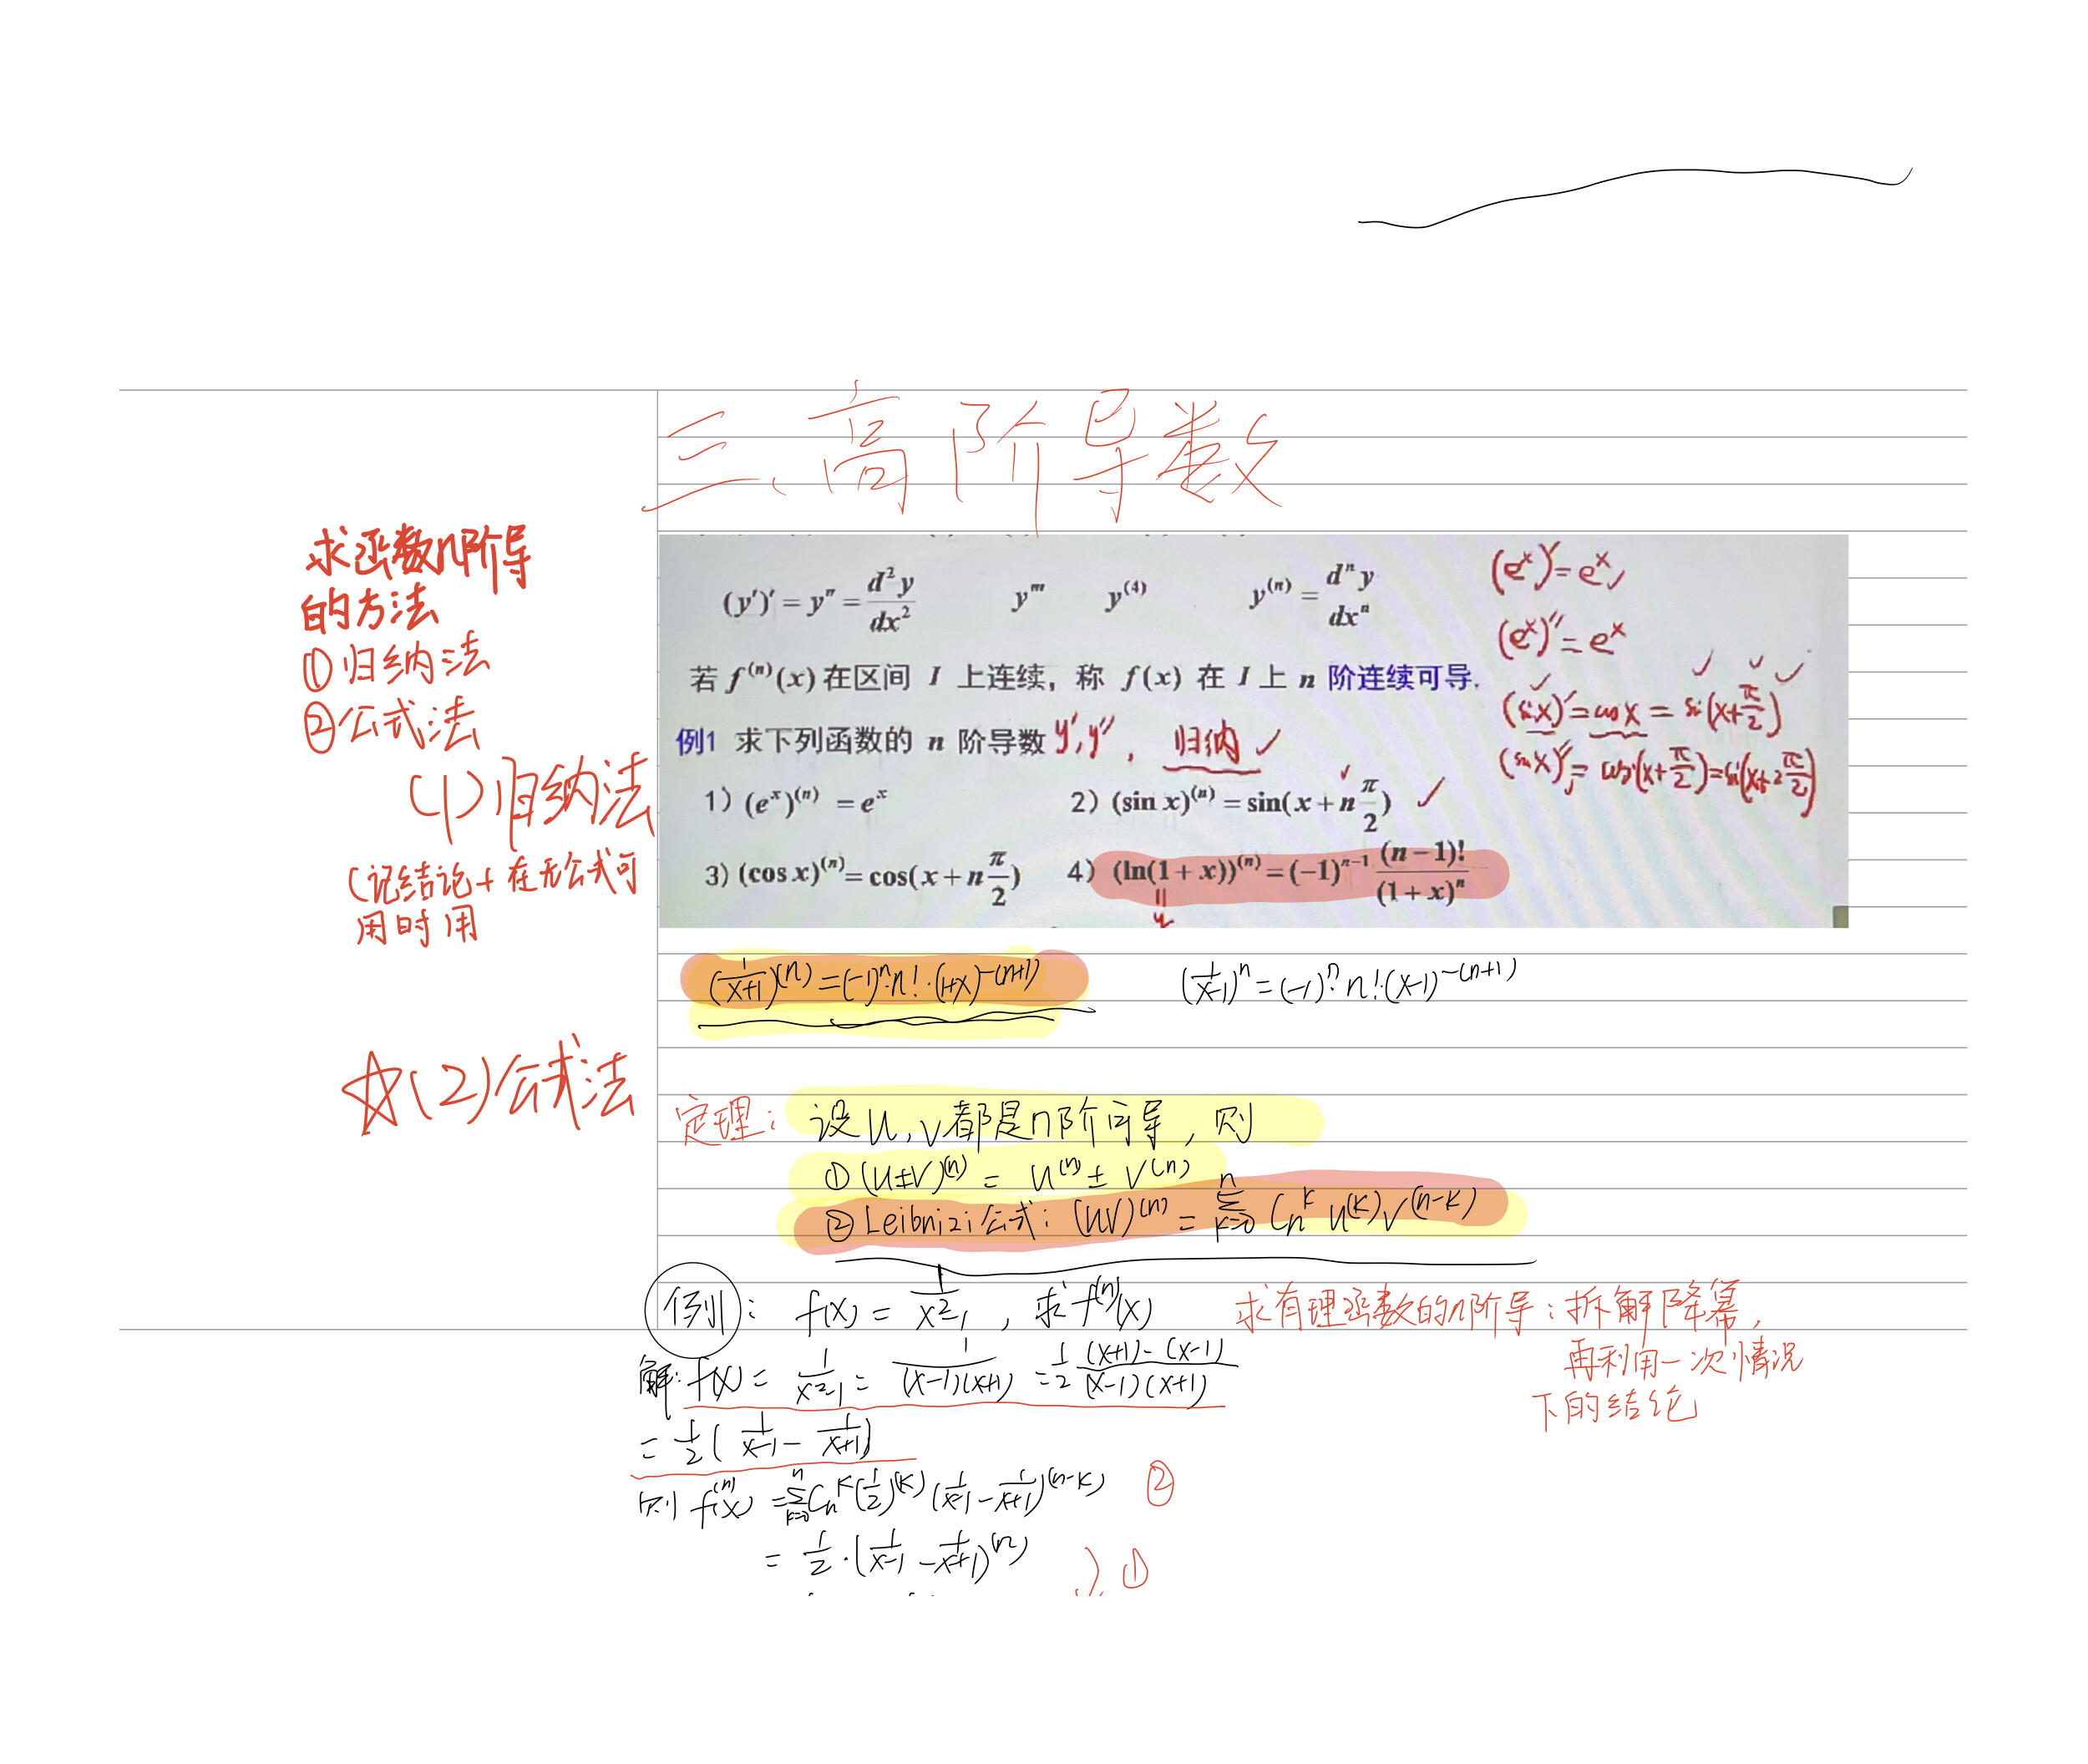 三、高阶导数
求函数n阶导
的方法
①归纳法
②公式法
(y')' = y'' = d²y/dx²  y'''  y^(4)  y^(n) = dⁿy/dxⁿ
(e^x)' = e^x
(e^x)'' = e^x
若 f^(n)(x) 在区间 I 上连续，称 f(x) 在 I 上 n 阶连续可导.
(sin x)' = cos x = sin(x+π/2)
(sin x)'' = cos(x+π/2) = sin(x+2·π/2)
例1 求下列函数的 n 阶导数 y', y'', 归纳
(1)归纳法
(记结论+在无公式可
用时用
1) (e^x)^(n) = e^x  2) (sin x)^(n) = sin(x + n π/2)
3) (cos x)^(n) = cos(x + n π/2)  4) (ln(1 + x))^(n) = (−1)^(n−1) (n−1)!/(1 + x)^n
(1/(x+1))^(n) = (-1)^n·n!·(1+x)^-(n+1)  (1/(x-1))^n = (-1)^n·n!·(x-1)^-(n+1)
☆(2)公式法
定理：设u,v都是n阶可导，则
①(u±v)^(n) = u^(n) ± v^(n)
②Leibnizi公式：(uv)^(n) = Σ_{k=0}^n C_n^k u^(k) v^(n-k)
例：f(x) = 1/(x²-1)，求f^(n)(x)
求有理函数的n阶导：拆解降幂，
再利用一次情况
下的结论
解：f(x) = 1/(x²-1) = 1/((x-1)(x+1)) = 1/2 ((x+1)-(x-1))/((x-1)(x+1))
= 1/2 (1/(x-1) - 1/(x+1))
则 f^(n)(x) = Σ_{k=0}^n C_n^k (1/2)^(k) (1/(x-1) - 1/(x+1))^(n-k) ②
= 1/2·(1/(x-1) - 1/(x+1))^(n)
①